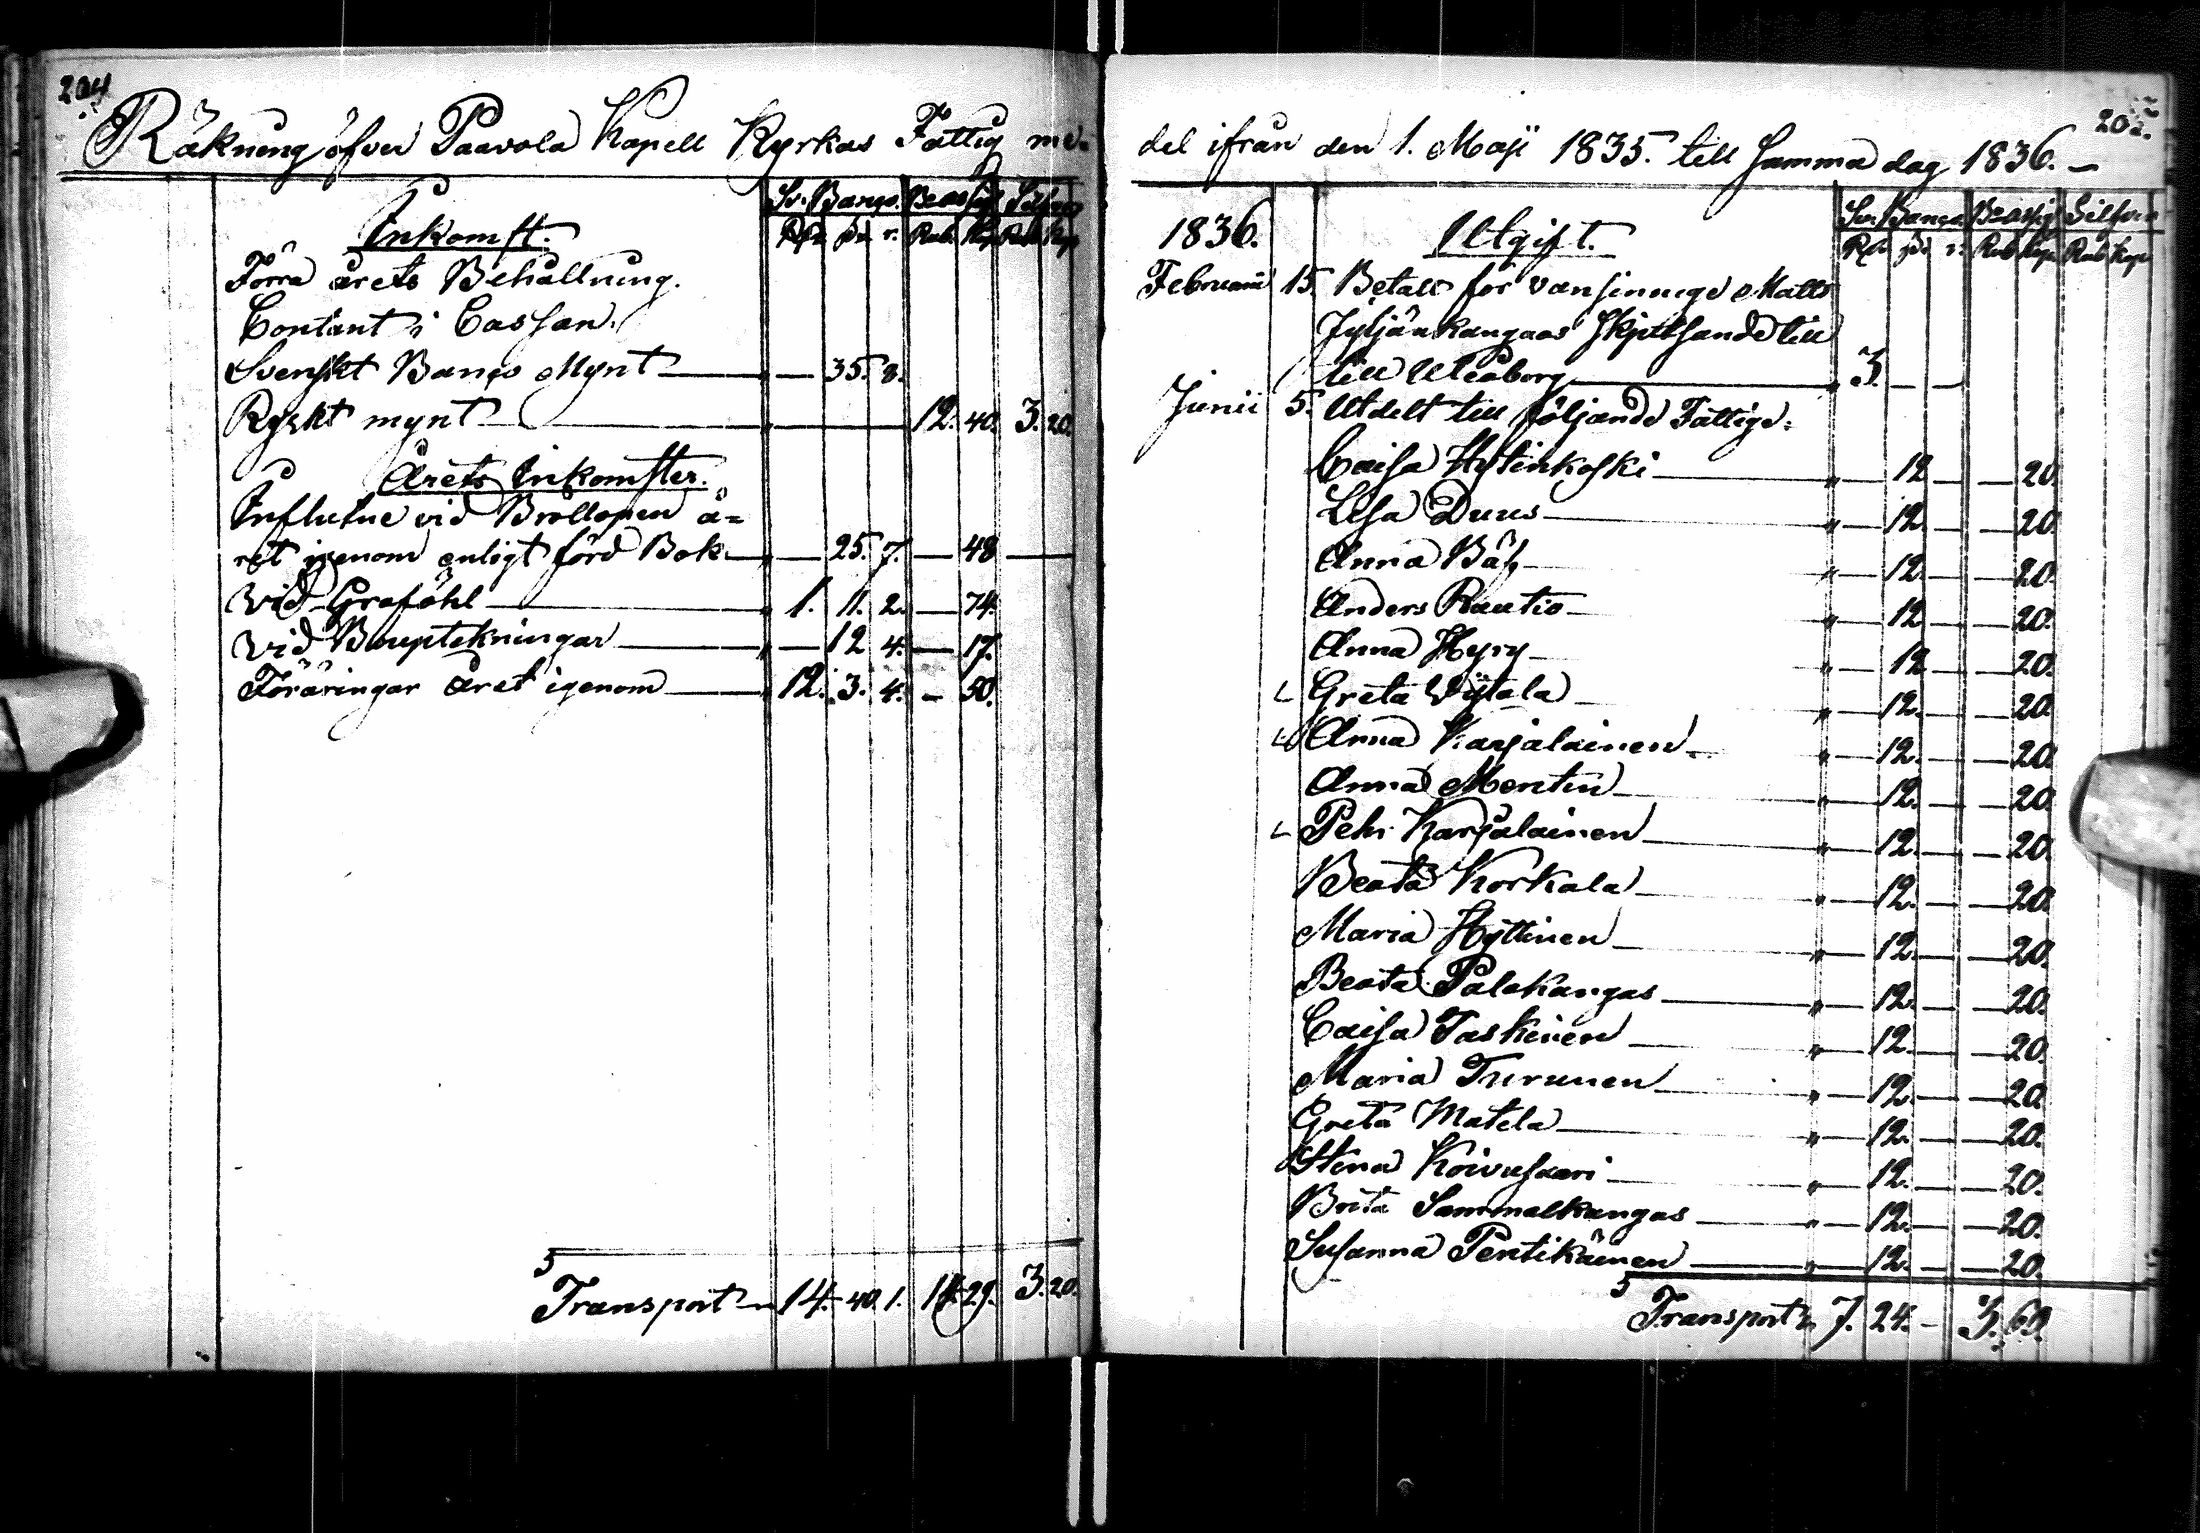 204
Räkning öfver Paavola Kapell Kyrkas Fattig me-
Sv. Banco. B:co Assig Silfver
Inkomst.
Rdr sk. r. Rub. Kop Rub Kop
Förra årets Behållning.
Contant i Cassan.
Svenskt Banco Mynt " — 35. 8.
Ryskt mynt 12. 40. 3. 20.
Årets Inkomster.
Influtne vid Bröllopen å=
ret igenom enligt förd Bok " — 25. 7. — 48 —
Vid Graföhl " 1. 11. 2. — 74.
Vid Bouptekningar " — 12 4. — 17.
Föräringar året igenom " 12. 3. 4. — 50.
Transport 14. 40. 1. 14. 29. 3. 20.
205.
del ifrån den 1. Maji 1835. till samma dag 1836. —
Sv. Banco B:co Assig Silfver
1836. Utgift.
Rdr sk r. Rub Kop Rub Kop
Februarii 15. Betalt för vansinnige Matts
Jyljänkangas skjutsande till
till Uleåborg " 3. — —
Junii 5. Utdelt till följande Fattige:
Caisa Hytinkoski " — 12 — — 20.
Lisa Duus " — 12. — — 20.
Anna Bäf " — 12. — — 20.
Anders Rautio " — 12 — — 20.
Anna Hyry " — 12 — — 20.
Greta Wijtala " — 12. — — 20.
Anna Karjalainen " — 12. — — 20.
Anna Mentin " — 12. — — 20.
Pehr Karjalainen " — 12. — — 20.
Beata Korkala " — 12. — — 20.
Maria Hyttinen " — 12. — — 20.
Beata Palokangas " — 12. — — 20.
Caisa Taskinen " — 12. — — 20.
Maria Turunen " — 12. — — 20.
Greta Matela " — 12. — — 20.
Stina Koivusaari " — 12. — — 20.
Brita Sammalkangas " — 12. — — 20.
Susanna Pentikäinen " — 12. — — 20.
Transport 7. 24. — 3. 60.